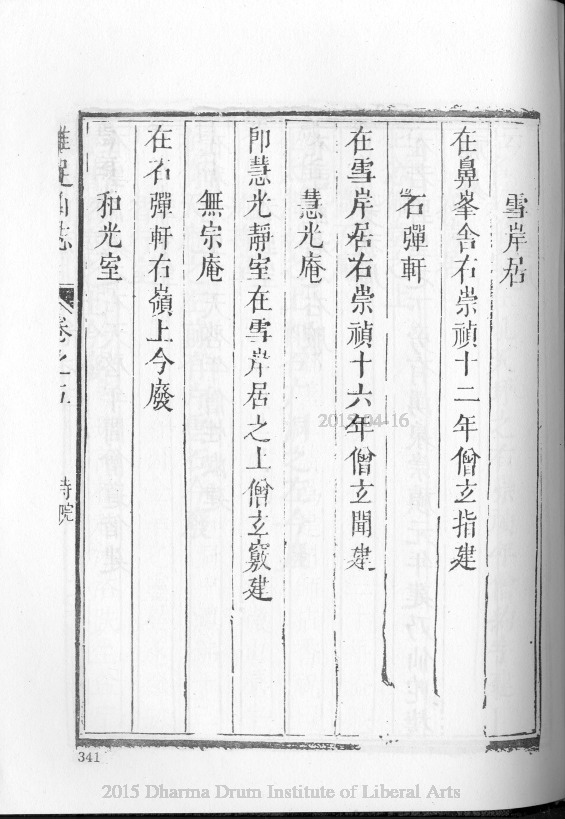 雪岸居
在鼻峯舍右崇禎十二年僧玄指建
石彈軒
在雪岸居右崇禎十六年僧玄聞建
慧光庵
即慧光靜室在雪岸居之上僧玄竅建
無宗庵
在石彈軒右嶺上今廢
和光室
雞足山志 卷之五 寺院
2015-04-16
341
2015 Dharma Drum Institute of Liberal Arts